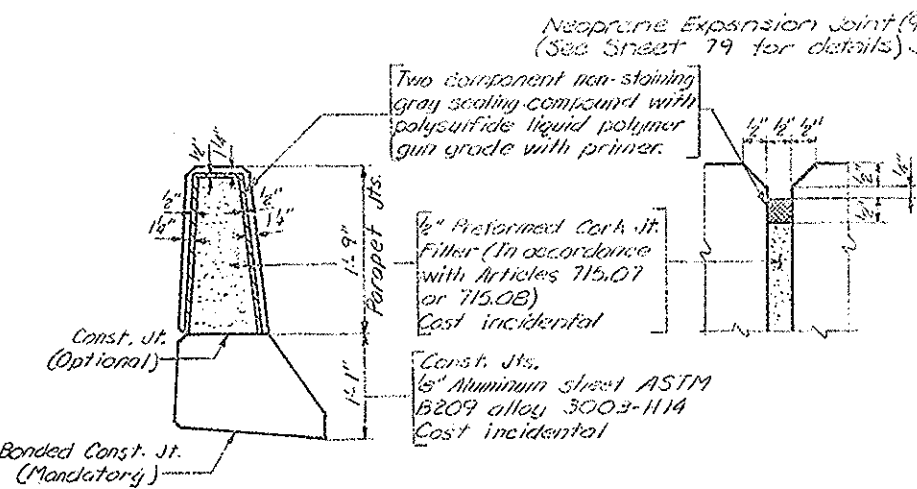 Neoprene Expansion Joint
(See Sheet 79 for details)
Two component non-staining
gray sealing compound with
polysulfide liquid polymer
gun grade with primer.
1/2" 1/2" 1/2"
1/2" 1 1/4"
1/2" 1/2"
1 1/4" 1 1/4"
1/2" 1/4"
1/2"
1'-9"
Parapet Jts.
1/2" Preformed Cork Jt.
Filler (In accordance
with Articles 715.07
or 715.08)
Cost incidental
Const. Jt.
(Optional)
1'-1"
Const. Jts.
1/8" Aluminum sheet ASTM
B209 alloy 3003-H14
Cost incidental
Bonded Const. Jt.
(Mandatory)